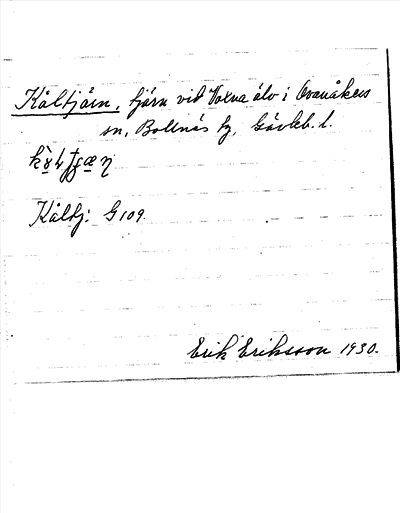 Kåltjärn, tjärn vid Voxna älv i Ovanåkers
sn, Bollnäs tg, Gävleb. l.
Kåltj: G 109.
Erik Eriksson 1930.